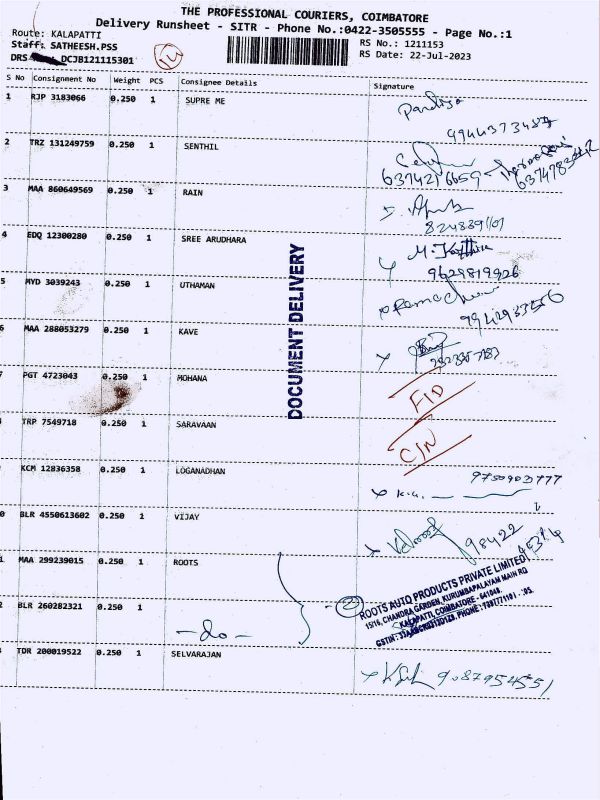 THE PROFESSIONAL COURIERS, COIMBATORE
Delivery Runsheet - SITR - Phone No.:0422-3505555 - Page No.:1
Route: KALAPATTI
Staff: SATHEESH.PSS
DRS DCJB121115301
RS No.: 1211153
RS Date: 22-Jul-2023
S No Consignment No Weight PCS Consignee Details Signature
1 RJP 3183066 0.250 1 SUPRE ME
2 TRZ 131249759 0.250 1 SENTHIL
6374216659
3 MAA 860649569 0.250 1 RAIN
4 EDQ 12300280 0.250 1 SREE ARUDHARA
9629819926
5 MYD 3039243 0.250 1 UTHAMAN
6 MAA 288053279 0.250 1 KAVE
PGT 4723043 0.250 1 MOHANA
F/D
TRP 7549718 0.250 1 SARAVAAN
C/N
KCM 12836358 0.250 1 LOGANADHAN
0 BLR 4550613602 0.250 1 VIJAY
98422
1 MAA 299239015 0.250 1 ROOTS
2 BLR 260282321 0.250 1
-do-
2
ROOTS AUTO PRODUCTS PRIVATE LIMITED
15/16, CHANDRA GARDEN, KURUMBAPALAYAM MAIN RD
KALAPATTI, COIMBATORE - 641048.
TDR 200019522 0.250 1 SELVARAJAN
9087954551
DOCUMENT DELIVERY